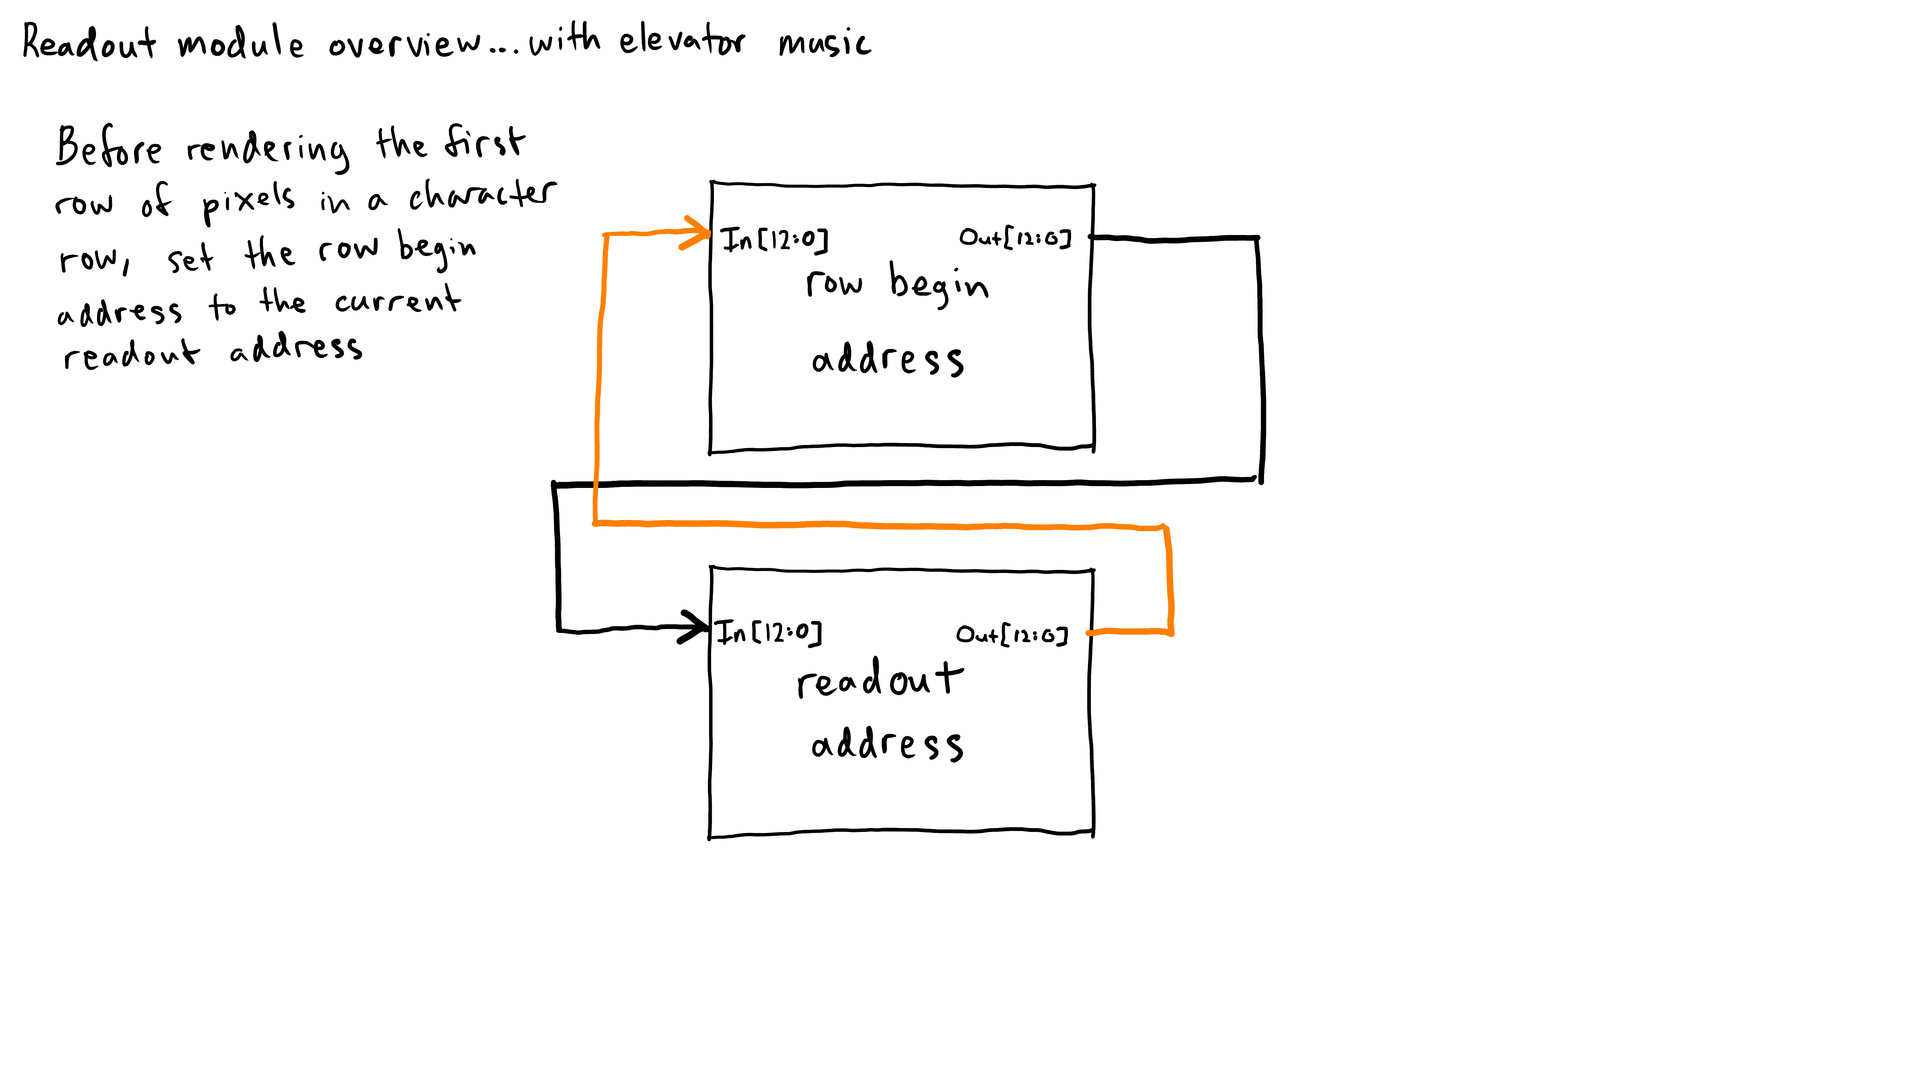 Readout module overview...with elevator music
Before rendering the first
row of pixels in a character
row, set the row begin
address to the current
readout address
In[12:0] Out[12:0]
row begin
address
In[12:0] Out[12:0]
readout
address